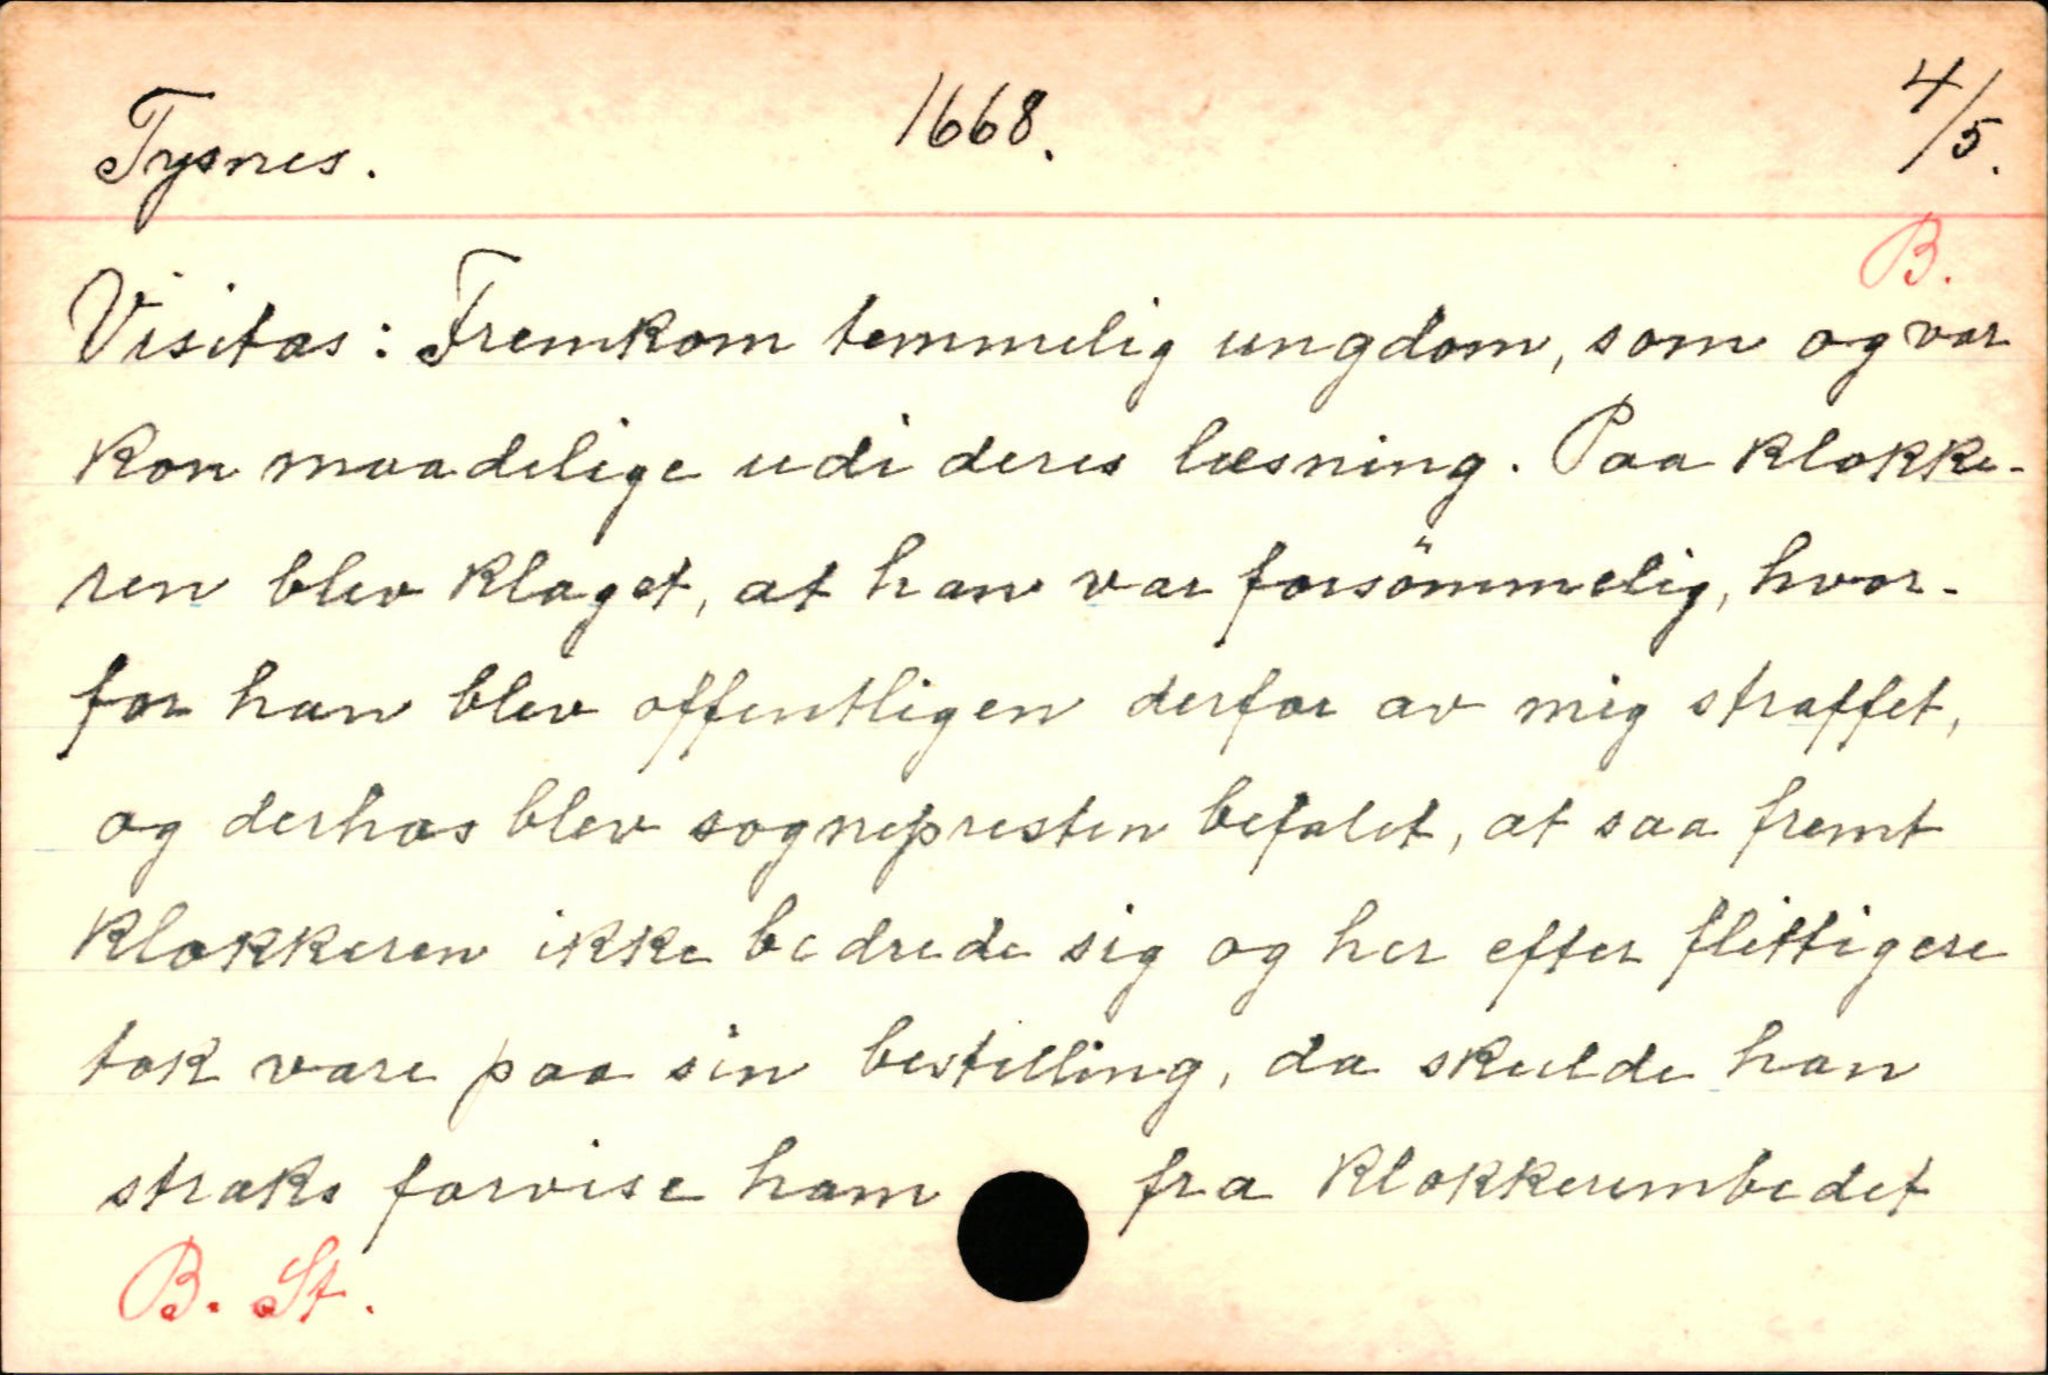 Tysnes. 1668. 4/5.
B.
Visitas: Fremkom temmelig ungdom, som og var
kon maadelige udi deres læsning. Paa klokke-
ren blev klaget, at han var forsömmelig, hvor-
for han blev offentligen derfor av mig straffet,
og derhos blev sognepresten befalet, at saa fremt
klokkeren ikke bedrede sig og her efter flittigere
tok vare paa sin bestilling, da skulde han
straks forvise ham fra klokkerembedet
B. St.